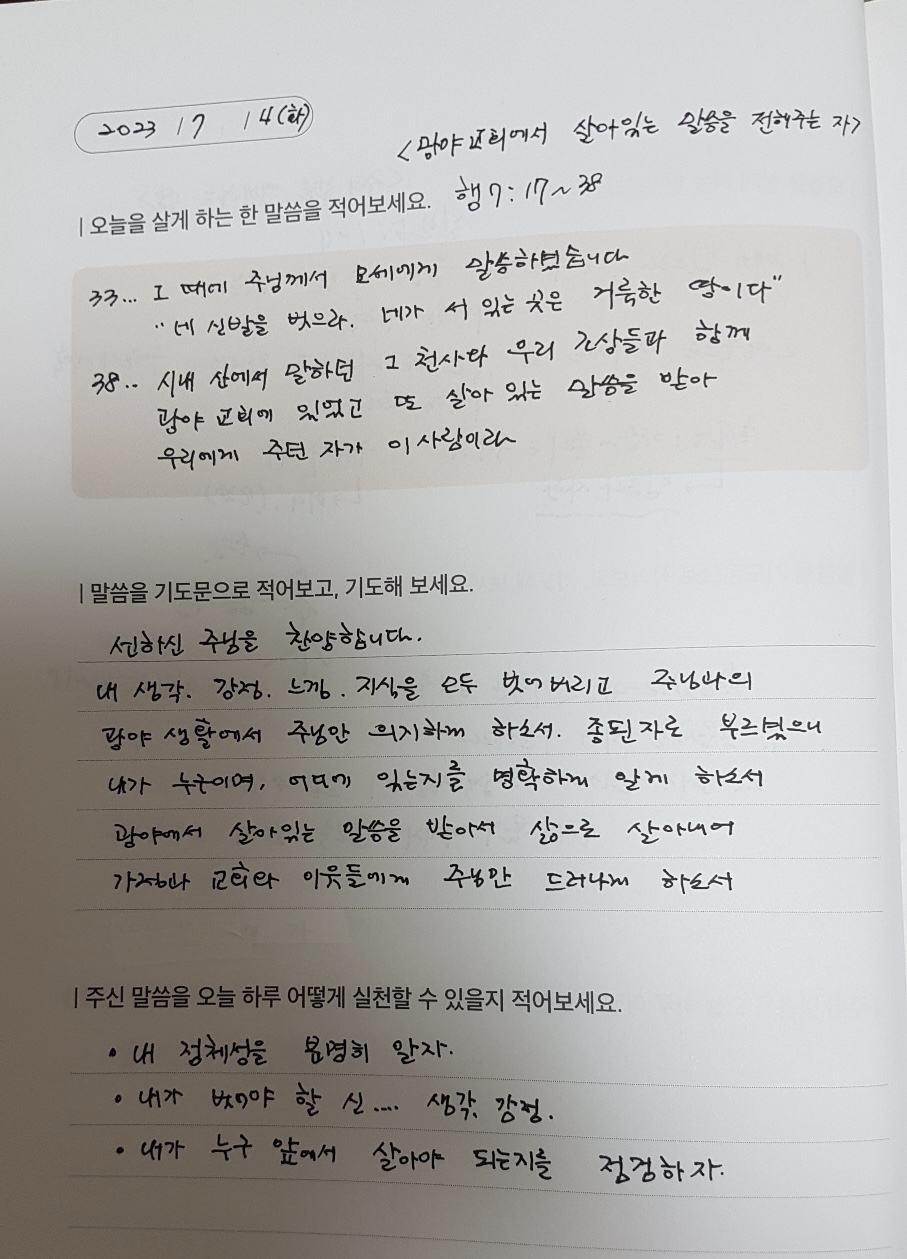 2023 / 7 / 4 (화)
<광야 교회에서 살아있는 말씀을 전해주는 자>
| 오늘을 살게 하는 한 말씀을 적어보세요. 행7:17~38
33... 그 때에 주님께서 모세에게 말씀하셨습니다
"네 신발을 벗으라. 네가 서 있는 곳은 거룩한 땅이다"
38.. 시내 산에서 말하던 그 천사와 우리 조상들과 함께
광야 교회에 있었고 또 살아 있는 말씀을 받아
우리에게 주던 자가 이 사람이라
| 말씀을 기도문으로 적어보고, 기도해 보세요.
선하신 주님을 찬양합니다.
내 생각. 감정. 느낌. 지식을 모두 벗어버리고 주님과의
광야 생활에서 주님만 의지하게 하소서. 종된자로 부르셨으니
내가 누구이며, 어디에 있는지를 명확하게 알게 하소서
광야에서 살아있는 말씀을 받아서 삶으로 살아내어
가정과 교회와 이웃들에게 주님만 드러나게 하소서
| 주신 말씀을 오늘 하루 어떻게 실천할 수 있을지 적어보세요.
• 내 정체성을 분명히 알자.
• 내가 벗어야 할 신.... 생각, 감정.
• 내가 누구 앞에서 살아야 되는지를 점검하자.